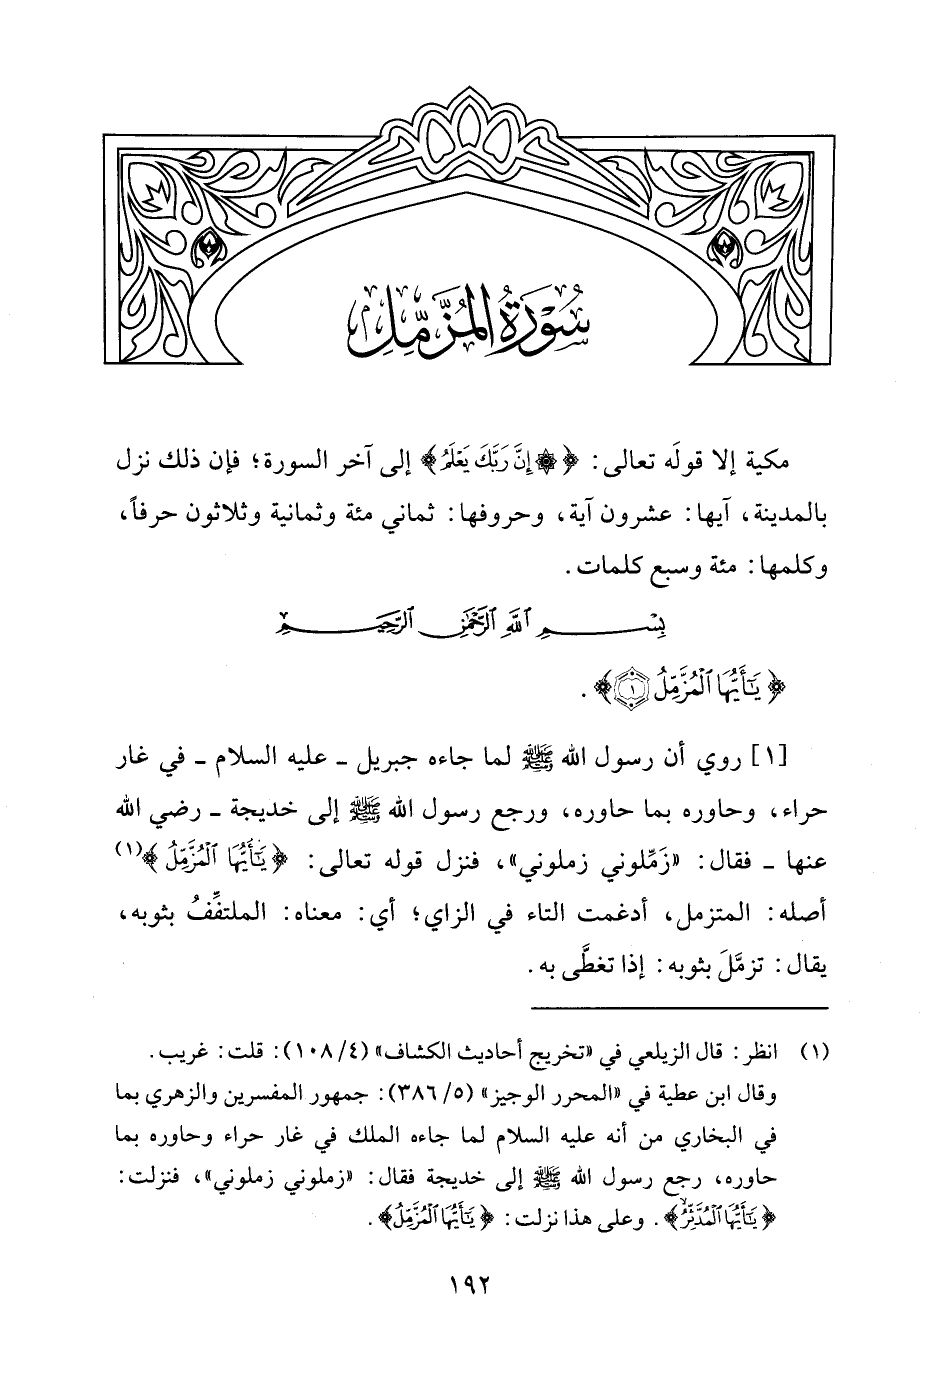 سُوْرَةُ المُزَّمِّلِ
مكية إلا قولَه تعالى: ﴿۞ إِنَّ رَبَّكَ يَعْلَمُ﴾ إلى آخر السورة؛ فإن ذلك نزل
بالمدينة، آيها: عشرون آية، وحروفها: ثماني مئة وثمانية وثلاثون حرفاً،
وكلمها: مئة وسبع كلمات.
بِسْمِ ٱللَّهِ ٱلرَّحْمَٰنِ ٱلرَّحِيمِ
﴿يَٰٓأَيُّهَا ٱلْمُزَّمِّلُ ١﴾.
[١] روي أن رسول الله ﷺ لما جاءه جبريل ـ عليه السلام ـ في غار
حراء، وحاوره بما حاوره، ورجع رسول الله ﷺ إلى خديجة ـ رضي الله
عنها ـ فقال: «زَمِّلوني زملوني»، فنزل قوله تعالى: ﴿يَٰٓأَيُّهَا ٱلْمُزَّمِّلُ﴾(١)
أصله: المتزمل، أدغمت التاء في الزاي؛ أي: معناه: الملتفِّفُ بثوبه،
يقال: تزمَّلَ بثوبه: إذا تغطَّى به.
(١) انظر: قال الزيلعي في «تخريج أحاديث الكشاف» (٤/ ١٠٨): قلت: غريب.
وقال ابن عطية في «المحرر الوجيز» (٥/ ٣٨٦): جمهور المفسرين والزهري بما
في البخاري من أنه عليه السلام لما جاءه الملك في غار حراء وحاوره بما
حاوره، رجع رسول الله ﷺ إلى خديجة فقال: «زملوني زملوني»، فنزلت:
﴿يَٰٓأَيُّهَا ٱلْمُدَّثِّرُ﴾. وعلى هذا نزلت: ﴿يَٰٓأَيُّهَا ٱلْمُزَّمِّلُ﴾.
١٩٢